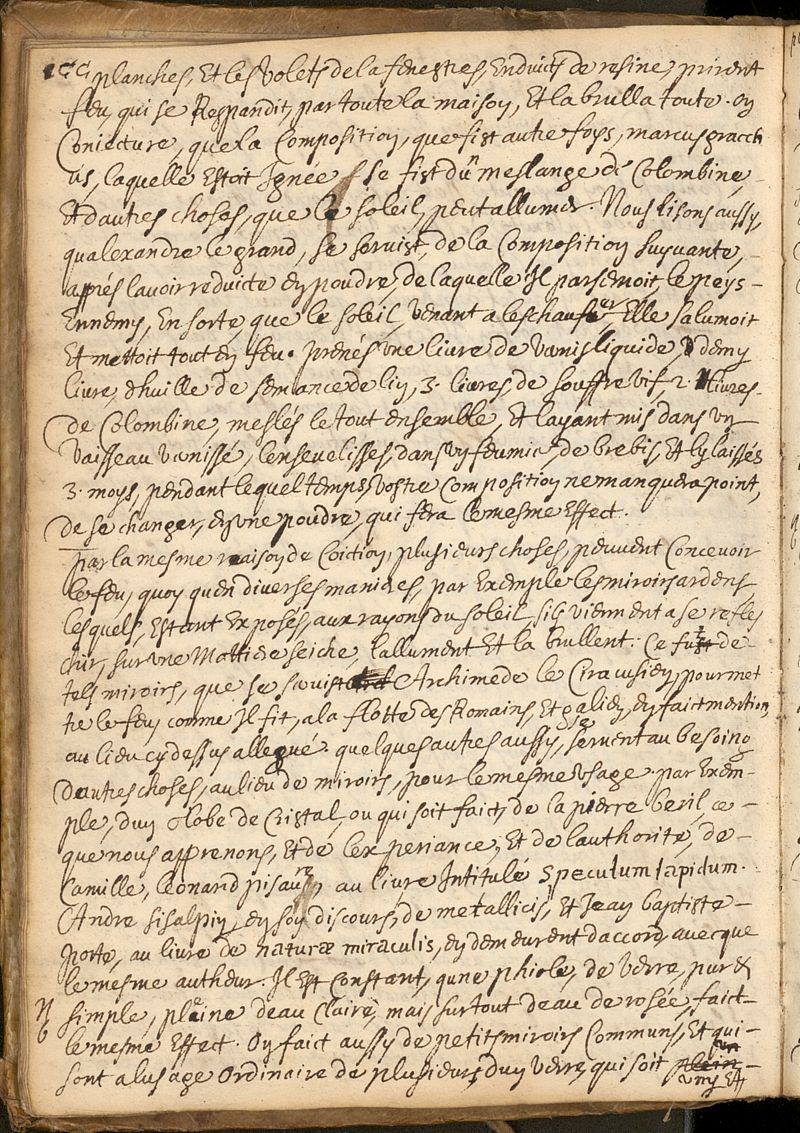 planches, Et les volets de la fenestres, Enduicts de resine, prirent
feu, qui se Respandit, par toute la maison, Et la brulla toute. on
Coniecture, que la Composition, que fist autre foys, marcus gracch
us, laquelle Estoit Ignée se fist dü meslange de Colombine,
Et dautres choses, que le soleil, peut allumer. Nous lisons aussy,
qualexandre le grand, se servist, de la Composition suyvante,
apprés lavoir reduicte en poudre, de laquelle Il parsemoit le peys
Ennemy, En sorte que le soleil, venant a leschaufer Elle salumoit
Et mettoit tout en feu. prenés une livre de vernis liquide, demy
livre, dhuille de semance de lin, 3. livres de souffre vif 2. livres
de Colombine, meslés le tout ensemble, Et layant mis dans un
vaisseau vernissé, lensevelisses, dans un feumier, de brebis, Et ly laissés
3. moys, pendant lequel temps, vostre composition ne manquera point,
de se changer, en une poudre, qui fera le mesme Effect.
par la mesme raison de Coition, plusieurs choses, peuvent Concevoir
le feu, quoy quen diverses manieres, par Exemple les miroirs ardens,
lesquels, Estant Exposés, aux rayons du soleil, sils viennent a se refle
chir, sur une Mattiere seiche, lallument Et la brullent: Ce fust de
tels miroirs, que se servist Archimede le Ciracusien, pour met
tre le feu, comme Il fit, a la flotte des Romains, Et galien, en faict mention,
au lieu cy dessus allegué. quelques autres aussy, se servent au besoing
dautres choses, au lieu de miroirs, pour le mesme usage. par Exem
ple, dun Globe de Cristal, ou qui soit faict, de la pierre beril, ce
que nous apprenons, Et de lexperiance, Et de lauthorité, de
Camille, leonard pisaure, au livre Intitulé Speculum lapidum.
Andre sisalpin, en son discours, de metallicis, Et Jean baptiste
porte, au livre de naturæ miraculis, en demeurent daccord, avecque
le mesme autheur. Il Est Constant, qune phiole, de verre, pur &
N
b
simple, plaine deau Claire, mais surtout deau de rosée, faict
le mesme Effect. On faict aussy de petits miroirs Communs, Et qui
sont a lusage Ordinaire de plusieurs, dun verre, qui soit
uny Et